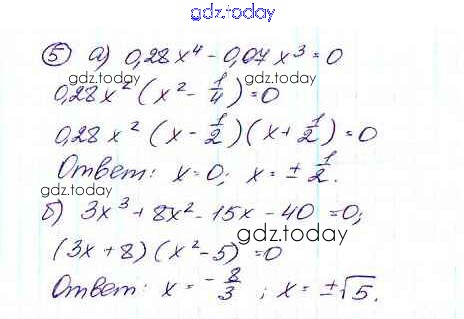 gdz.today
5 а) 0,28x⁴ - 0,07x³ = 0
gdz.today
gdz.today
0,28x² (x² - 1/4) = 0
0,28x² (x - 1/2)(x + 1/2) = 0
gdz.today
Ответ: x = 0; x = ± 1/2.
gdz.today
б) 3x³ + 8x² - 15x - 40 = 0;
gdz.today
(3x + 8)(x² - 5) = 0
Ответ: x = - 8/3 ; x = ±√5.